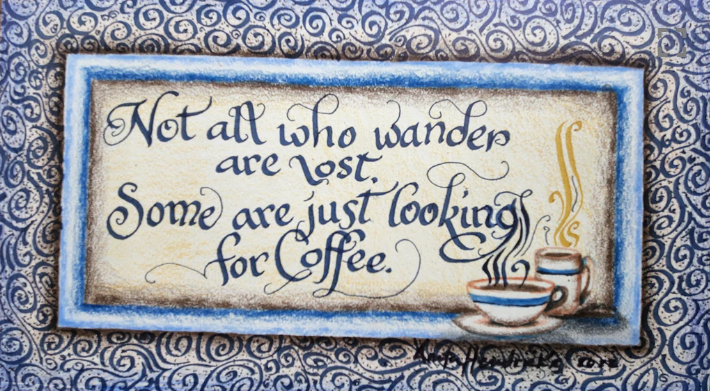 Not all who wander
are lost.
Some are just looking
for Coffee.